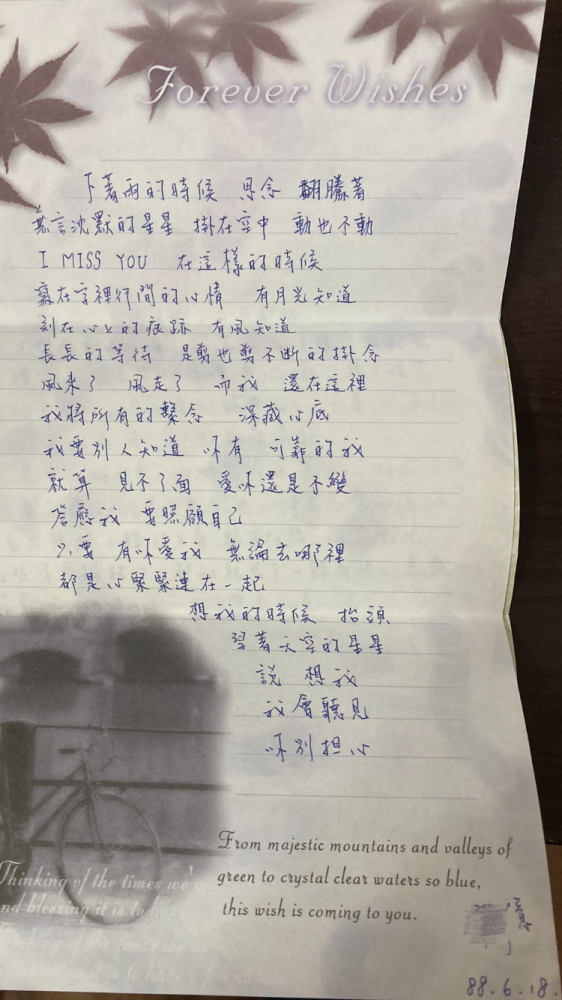 Forever Wishes
下著雨的時候 思念 翻騰著
無言沈默的星星 掛在空中 動也不動
I MISS YOU 在這樣的時候
寫在字裡行間的心情 有月光知道
刻在心上的痕跡 有風知道
長長的等待 是剪也剪不斷的掛念
風來了 風走了 而我 還在這裡
我將所有的繫念 深藏心底
我要別人知道 你有 可靠的我
就算 見不了面 愛你還是不變
答應我 要照顧自己
只要 有你愛我 無論去哪裡
都是心緊緊連在一起
想我的時候 抬頭
望著天空的星星
說 想我
我會聽見
你別担心
From majestic mountains and valleys of
green to crystal clear waters so blue,
this wish is coming to you.
Thinking of the times we've
and blessing it is to ha
Thinking of the times we
88.6.18.